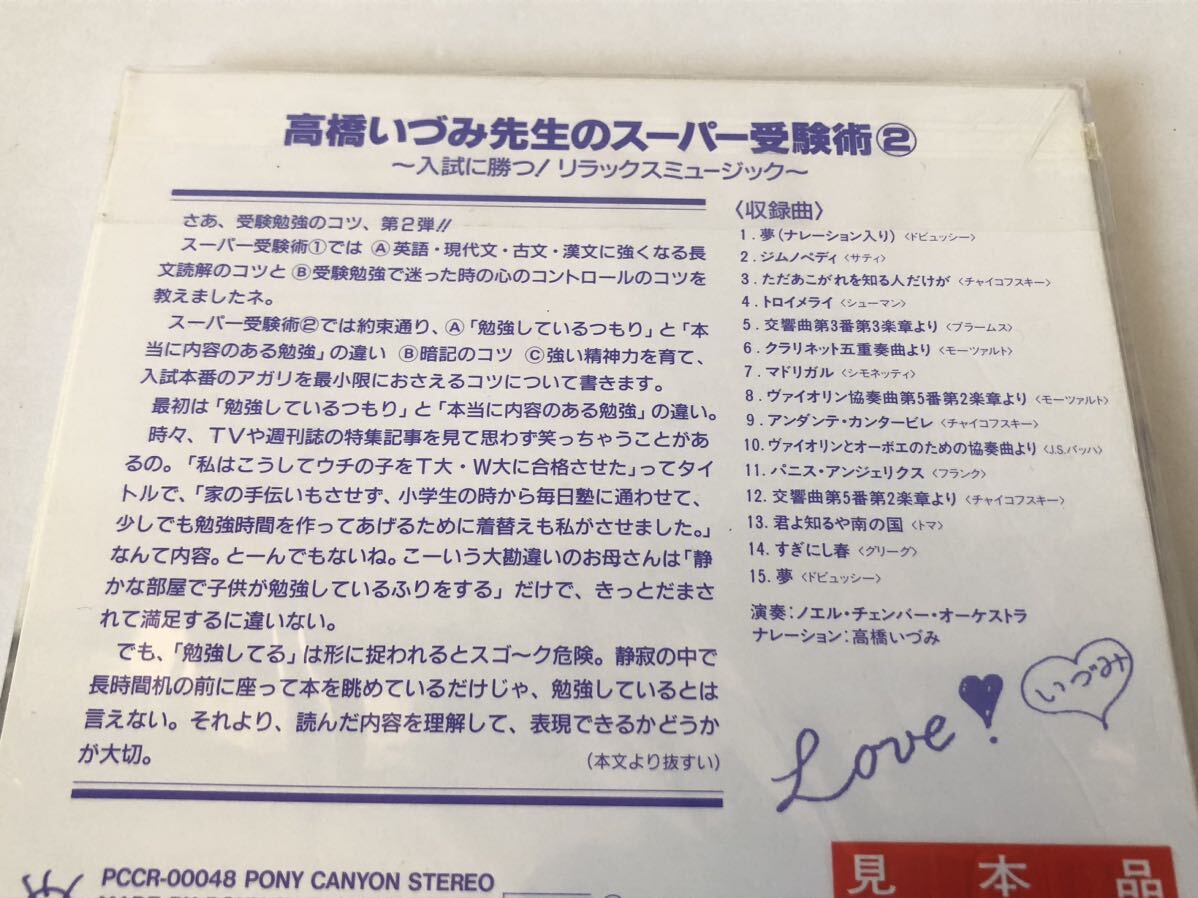 高橋いづみ先生のスーパー受験術②
〜入試に勝つ! リラックスミュージック〜
さあ、受験勉強のコツ、第2弾!!
スーパー受験術①では Ⓐ英語・現代文・古文・漢文に強くなる長
文読解のコツと Ⓑ受験勉強で迷った時の心のコントロールのコツを
教えましたネ。
スーパー受験術②では約束通り、Ⓐ「勉強しているつもり」と「本
当に内容のある勉強」の違い Ⓑ暗記のコツ Ⓒ強い精神力を育て、
入試本番のアガリを最小限におさえるコツについて書きます。
最初は「勉強しているつもり」と「本当に内容のある勉強」の違い。
時々、TVや週刊誌の特集記事を見て思わず笑っちゃうことがあ
るの。「私はこうしてウチの子をT大・W大に合格させた」ってタイ
トルで、「家の手伝いもさせず、小学生の時から毎日塾に通わせて、
少しでも勉強時間を作ってあげるために着替えも私がさせました。」
なんて内容。とーんでもないね。こーいう大勘違いのお母さんは「静
かな部屋で子供が勉強しているふりをする」だけで、きっとだまさ
れて満足するに違いない。
でも、「勉強してる」は形に捉われるとスゴ〜ク危険。静寂の中で
長時間机の前に座って本を眺めているだけじゃ、勉強しているとは
言えない。それより、読んだ内容を理解して、表現できるかどうか
が大切。
(本文より抜すい)
〈収録曲〉
1. 夢(ナレーション入り)〈ドビュッシー〉
2. ジムノペディ〈サティ〉
3. ただあこがれを知る人だけが〈チャイコフスキー〉
4. トロイメライ〈シューマン〉
5. 交響曲第3番第3楽章より〈ブラームス〉
6. クラリネット五重奏曲より〈モーツァルト〉
7. マドリガル〈シモネッティ〉
8. ヴァイオリン協奏曲第5番第2楽章より〈モーツァルト〉
9. アンダンテ・カンタービレ〈チャイコフスキー〉
10. ヴァイオリンとオーボエのための協奏曲より〈J.S.バッハ〉
11. パニス・アンジェリクス〈フランク〉
12. 交響曲第5番第2楽章より〈チャイコフスキー〉
13. 君よ知るや南の国〈トマ〉
14. すぎにし春〈グリーグ〉
15. 夢〈ドビュッシー〉
演奏:ノエル・チェンバー・オーケストラ
ナレーション:高橋いづみ
Love!
いづみ
PCCR-00048 PONY CANYON STEREO
見本品